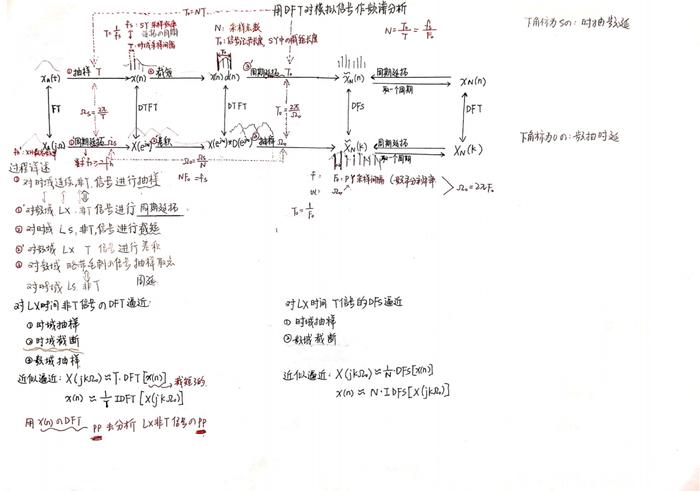 T₀=NT
用DFT对模拟信号作数谱分析
T=1/fs
fs: SY采样频率
延拓の周期
T: 时域采样间隔
N: 采样点数
T₀: 信号记录长度 SY中の截短长度
N = T₀/T = fs/F₀
下角标为sの: 时抽数延
下角标为0の: 数抽时延
Xa(t)
①抽样 T
x(n)
②截短
x(n)d(n)
③'周期延拓 T₀
x̃N(n)
周期延拓
取一个周期
xN(n)
FT
Ωs=2π/T
DTFT
DTFT
T₀=2π/Ω₀
DFS
DFT
Xa(jΩ)
①'周期延拓 Ωs
X(e^jω)
②'卷积
X(e^jω)*D(e^jω)
③抽样
X̃N(k)
周期延拓
取一个周期
XN(k)
Ω₀=Ωs/N
NF₀=fs
F₀: PY采样间隔 (数率分辨率
Ω₀=2πF₀
T₀=1/F₀
过程详述
① 对时域连续,非T,信号进行抽样
①' 对数域 LX,非T信号进行 周期延拓
② 对时域 LS,非T,信号进行截短
②' 对数域 LX T 信号进行卷积
③ 对数域 略带毛刺の信号抽样
对时域 LS 非T 周延
对LX时间非T信号のDFT逼近:
① 时域抽样
② 时域截断
③ 数域抽样
近似逼近: X(jkΩ₀)≈T·DFT[x(n)] 截短了的
x(n)≈1/T IDFT[X(jkΩ₀)]
用 x(n)のDFT PP 去分析 LX非T信号のPP
对LX时间 T信号的DFS逼近
① 时域抽样
② 数域截断
近似逼近: X(jkΩ₀)≈1/N·DFS[x(n)]
x(n)≈N·IDFS[X(jkΩ₀)]